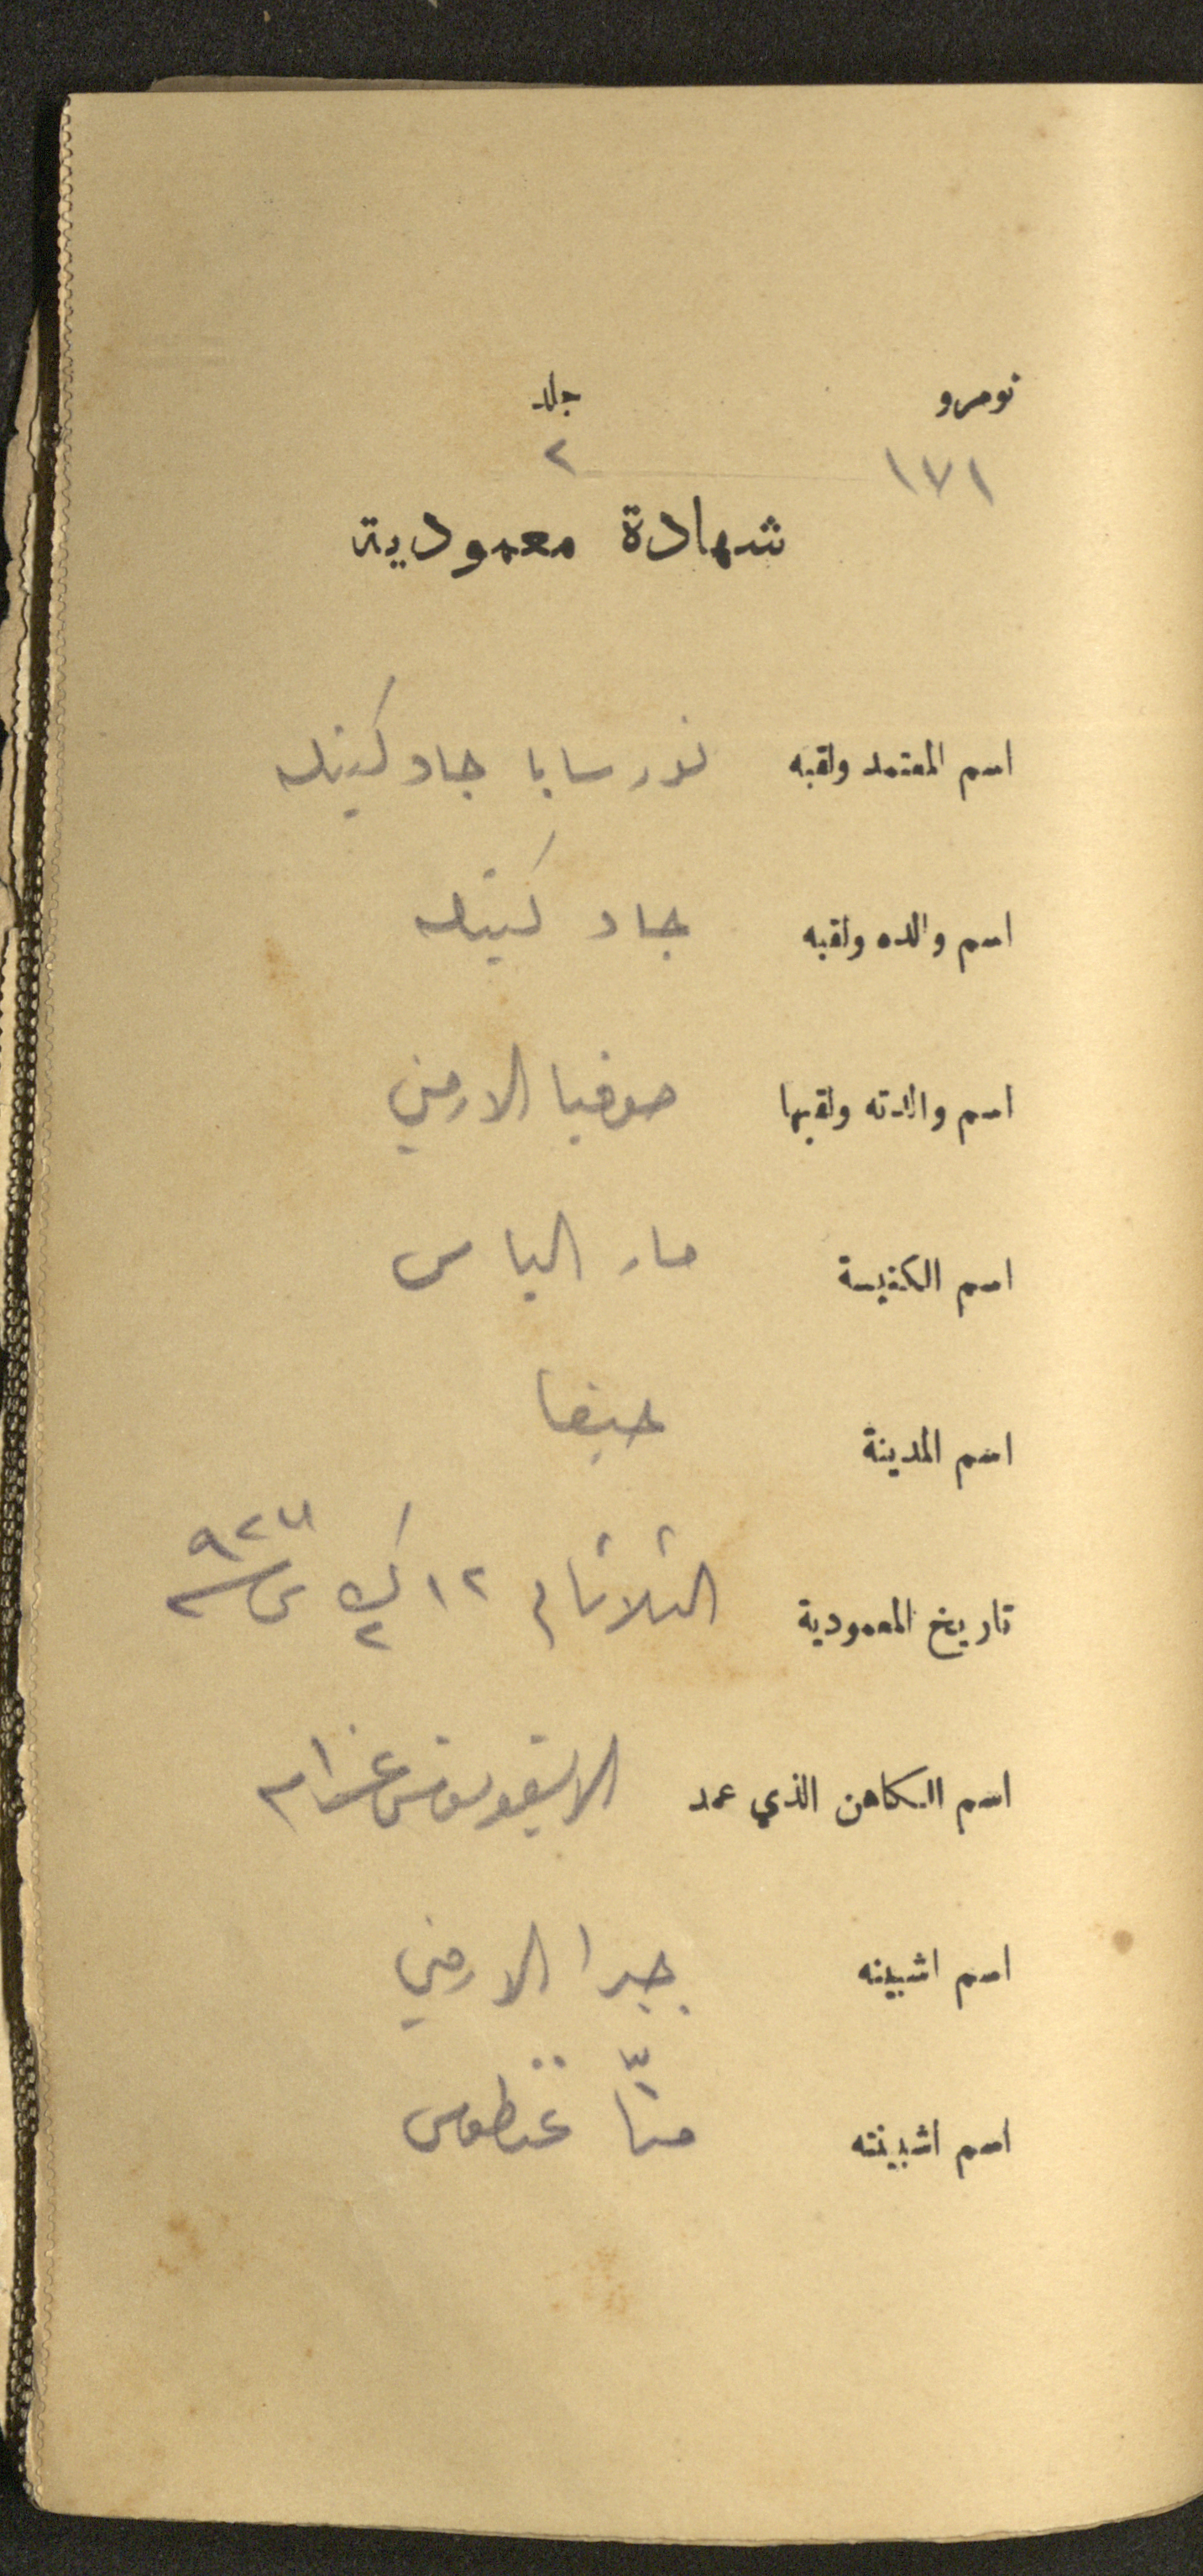 نومرو جلد
١٧١ ٢
شهادة معمودية
اسم المعتمد ولقبه نور سابا جاد كيتله
اسم والده ولقبه جاد كيتله
اسم والدته ولقبها صوفيا الارمني
اسم الكنيسة مار الياس
اسم المدينة حيفا
تاريخ المعمودية الثلاثا ١٢ ك٢
اسم الكاهن الذي عمد
اسم اشبينه جبرا الارمني
اسم اشبينته حنّا غنطوس